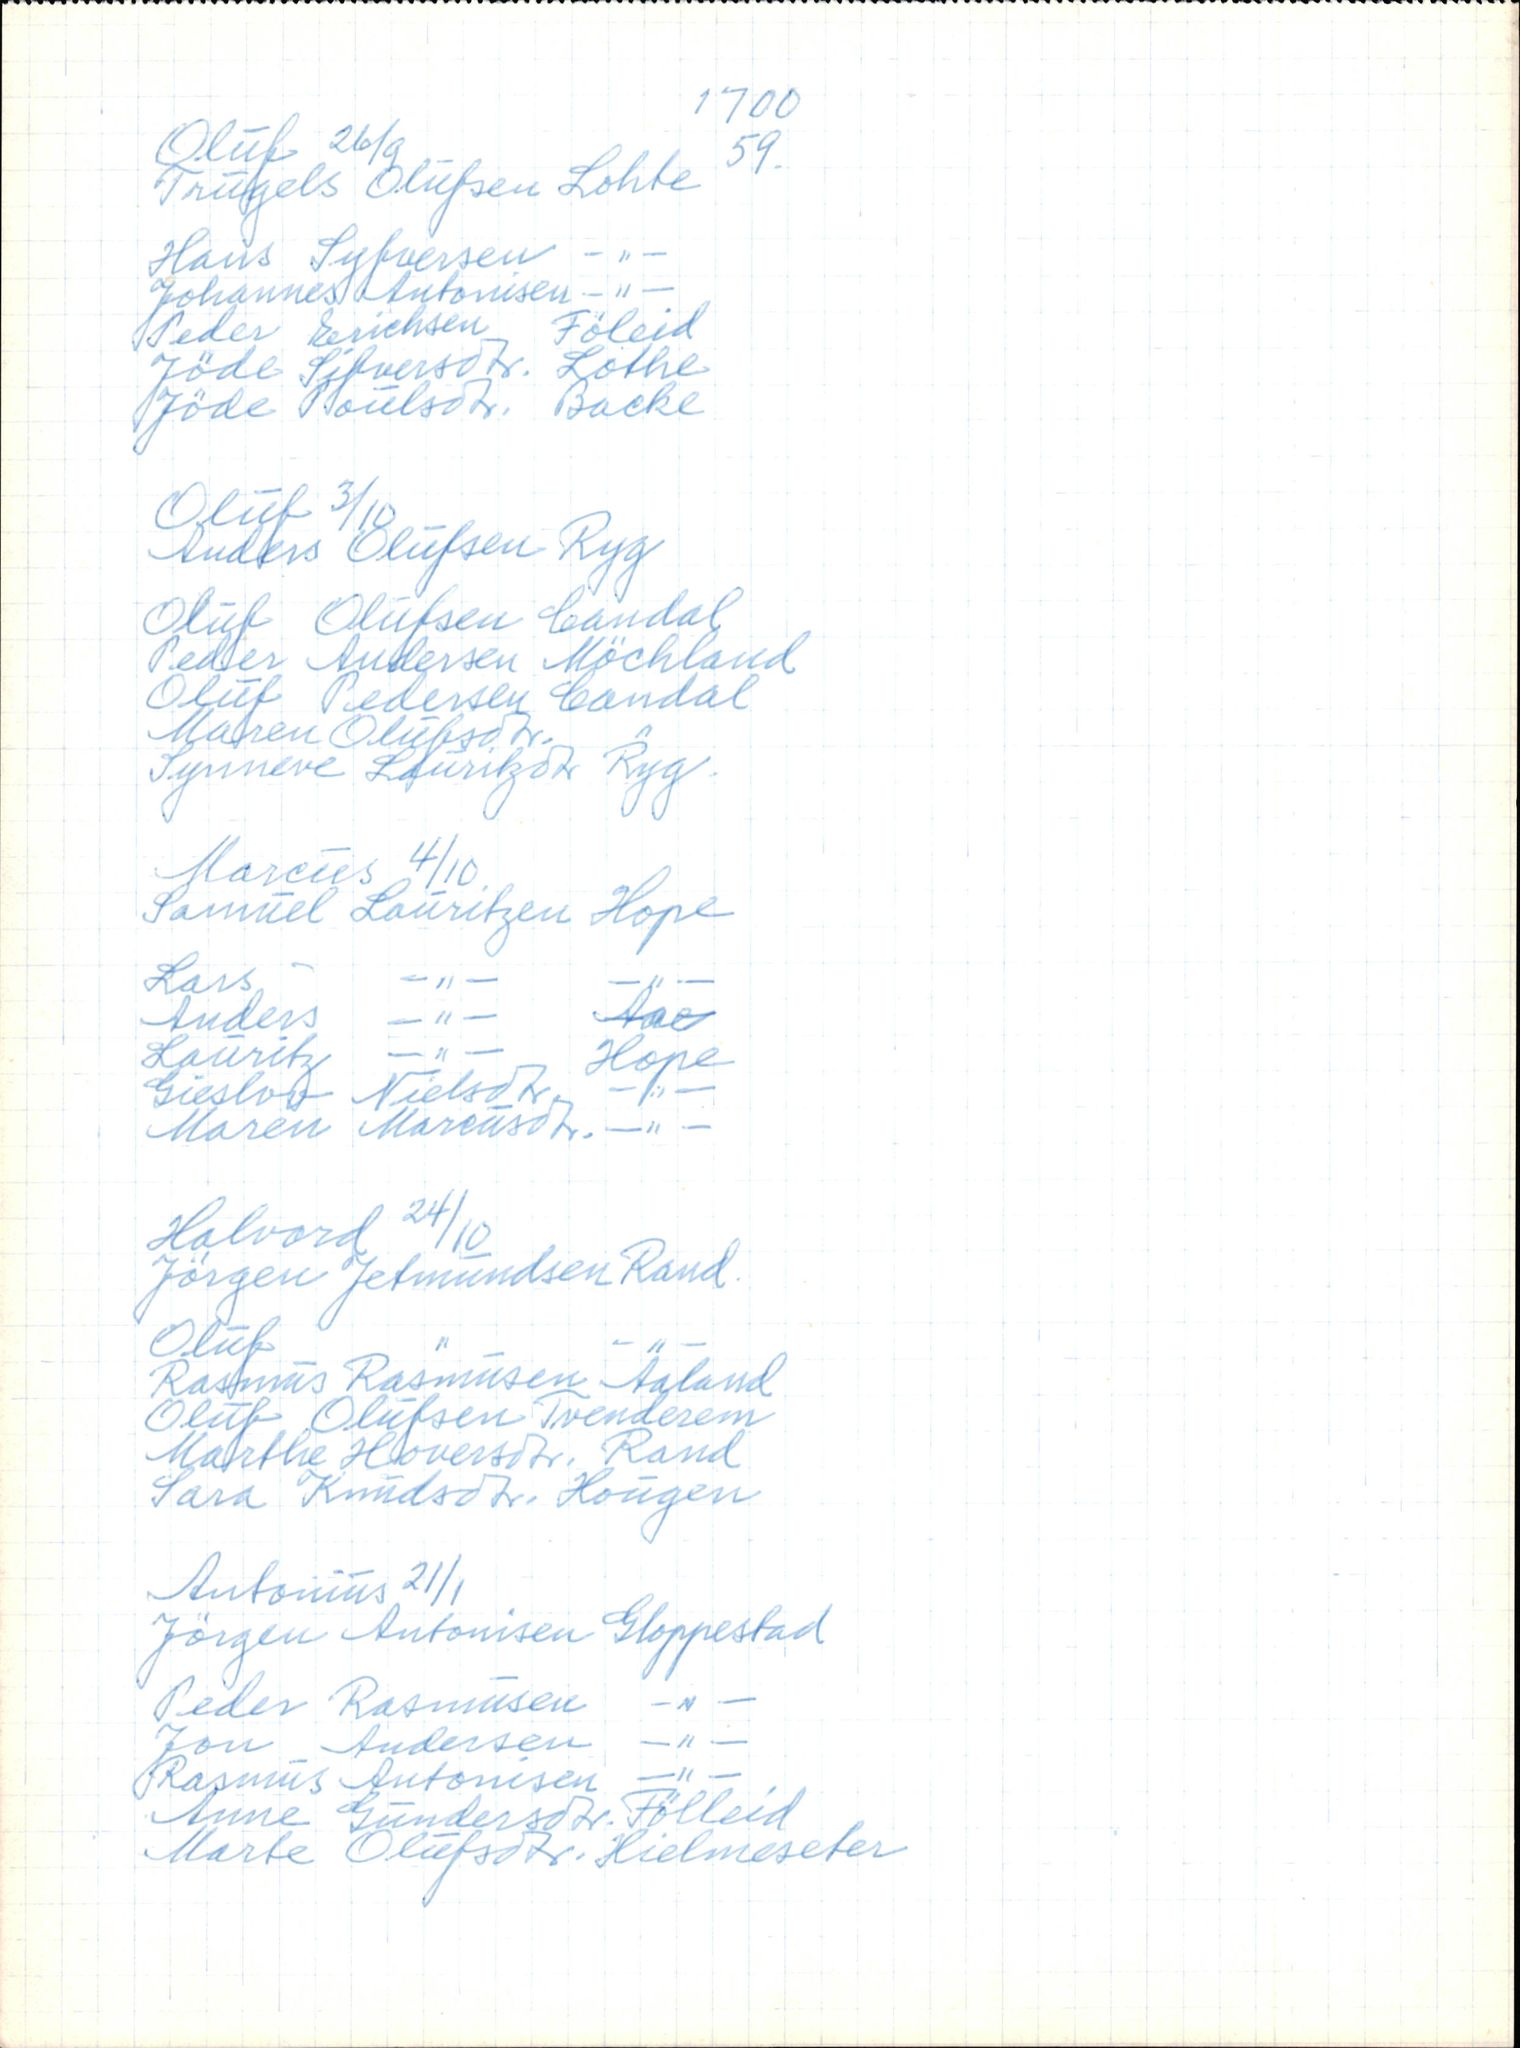 1700
Oluf 26/9 59.
Trugels Olufsen Lohte
Hans Syfversen -"-
Johannes Antonisen -"-
Peder Erichsen Föleid
Jöde Sifversdtr. Lothe
Jöde Poulsdtr. Backe
Oluf 3/10
Anders Olufsen Ryg
Oluf Olufsen Candal
Peder Andersen Möchland
Oluf Pedersen Candal
Maren Olufsdtr.
Synneve Lauritzdtr Ryg.
Marcus 4/10
Samuel Lauritzen Hope
Lars -"- -"-
Anders -"- Aae
Lauritz -"- Hope
Gieslov Nielsdtr. -"-
Maren Marcusdtr. -"-
Halvord 24/10
Jörgen Jetmundsen Rand.
Oluf " -"-
Rasmus Rasmusen Aaland
Oluf Olufsen Tvenderem
Marthe Hoversdtr. Rand
Sara Knudsdtr. Hougen
Antonius 21/1
Jörgen Antonisen Gloppestad
Peder Rasmusen -"-
Jon Andersen -"-
Rasmus Antonisen -"-
Anne Gundersdtr. Fölleid
Marte Olufsdtr. Hielmeseter